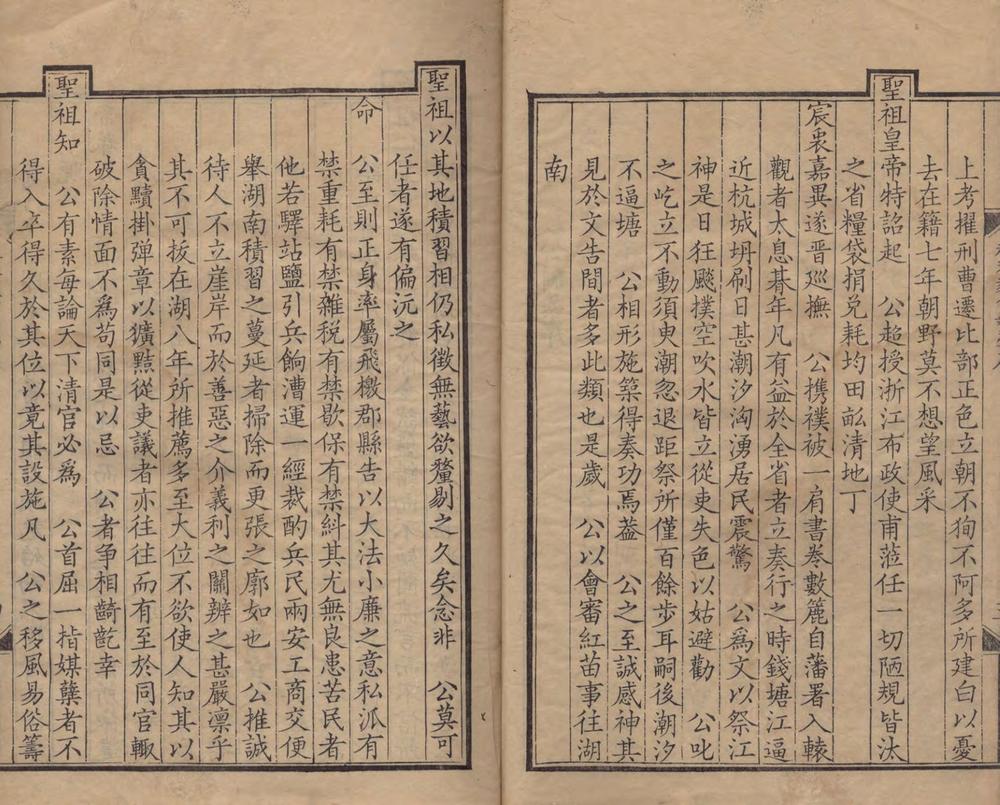 上考擢刑曹遷比部正色立朝不狥不阿多所建白以憂
去在籍七年朝野莫不想望風采
聖祖皇帝特詔起　公超授浙江布政使甫蒞任一切陋規皆汰
之省糧袋捐兑耗均田畆清地丁
宸衷嘉異遂晉巡撫　公携襆被一肩書卷數簏自藩署入轅
觀者太息朞年凡有益於全省者立奏行之時錢塘江逼
近杭城坍刷日甚潮汐洶湧居民震驚　公爲文以祭江
神是日狂飈撲空吹水皆立從吏失色以姑避勸　公叱
之屹立不動須臾潮忽退距祭所僅百餘步耳嗣後潮汐
不逼塘　公相形施築得奏功焉葢　公之至誠感神其
見於文告間者多此類也是歲　公以會審紅苗事往湖
南
聖祖以其地積習相仍私徵無藝欲釐剔之久矣念非　公莫可
任者遂有偏沅之
命　公至則正身率屬飛檄郡縣告以大法小廉之意私派有
禁重耗有禁雜税有禁歇保有禁糾其尤無良患苦民者
他若驛站鹽引兵餉漕運一經裁酌兵民兩安工商交便
舉湖南積習之蔓延者掃除而更張之廓如也　公推誠
待人不立崖岸而於善惡之介義利之關辨之甚嚴凛乎
其不可扳在湖八年所推薦多至大位不欲使人知其以
貪黷掛彈章以獷黠從吏議者亦往往而有至於同官輙
破除情面不爲苟同是以忌　公者爭相齮齕幸
聖祖知　公有素每論天下清官必爲　公首屈一指媒孽者不
得入卒得久於其位以竟其設施凡　公之移風易俗籌